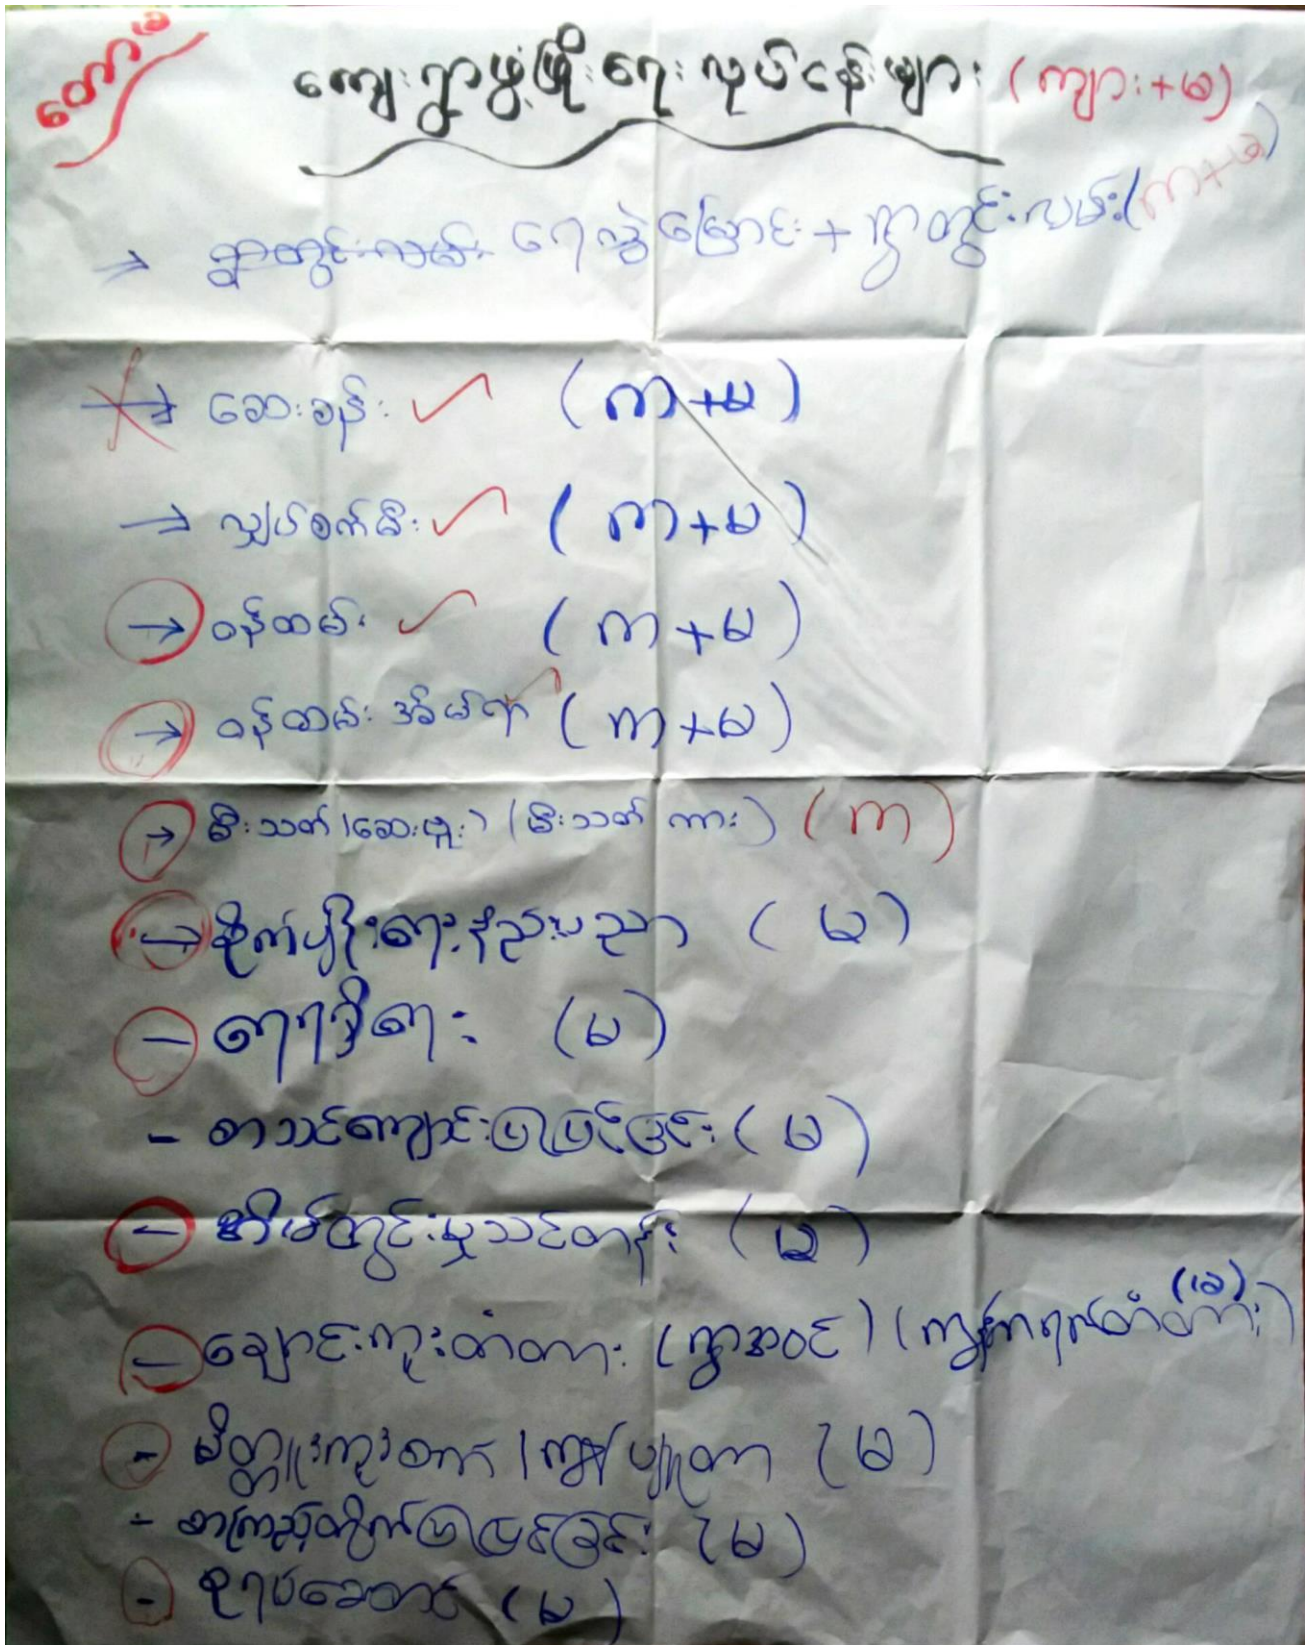 ကျေးရွာဖွံ့ဖြိုးရေးလုပ်ငန်းများ (ကျား+မ)
→ ရွာတွင်းလမ်း ရေလွှဲမြောင်း + ရွာတွင်းလမ်း (ကာ+မ)
→ ဆေးခန်း (ကာ+မ)
→ လျှပ်စစ်မီး (ကာ+မ)
→ ဝန်ထမ်း (ကာ+မ)
→ ဝန်ထမ်း အိမ်ရာ (ကာ+မ)
→ မီးသတ် (ဆေးဗူး) (မီးသတ် ကား) (ကာ)
→ စိုက်ပျိုးရေးနည်းပညာ (မ)
- ရေရရှိရေး (မ)
- စာသင်ကျောင်းပြုပြင်ခြင်း (မ)
- အိမ်တွင်းမှုသင်တန်း (မ)
- ချောင်းကူးတံတား (ရွာအဝင်) (ကွန်ကရစ်တံတား) (မ)
- မိတ္တူကူးစက် / ကွန်ပျူတာ (မ)
- စာကြည့်တိုက်ပြုပြင်ခြင်း (မ)
- စုရပ်ဆောင် (မ)